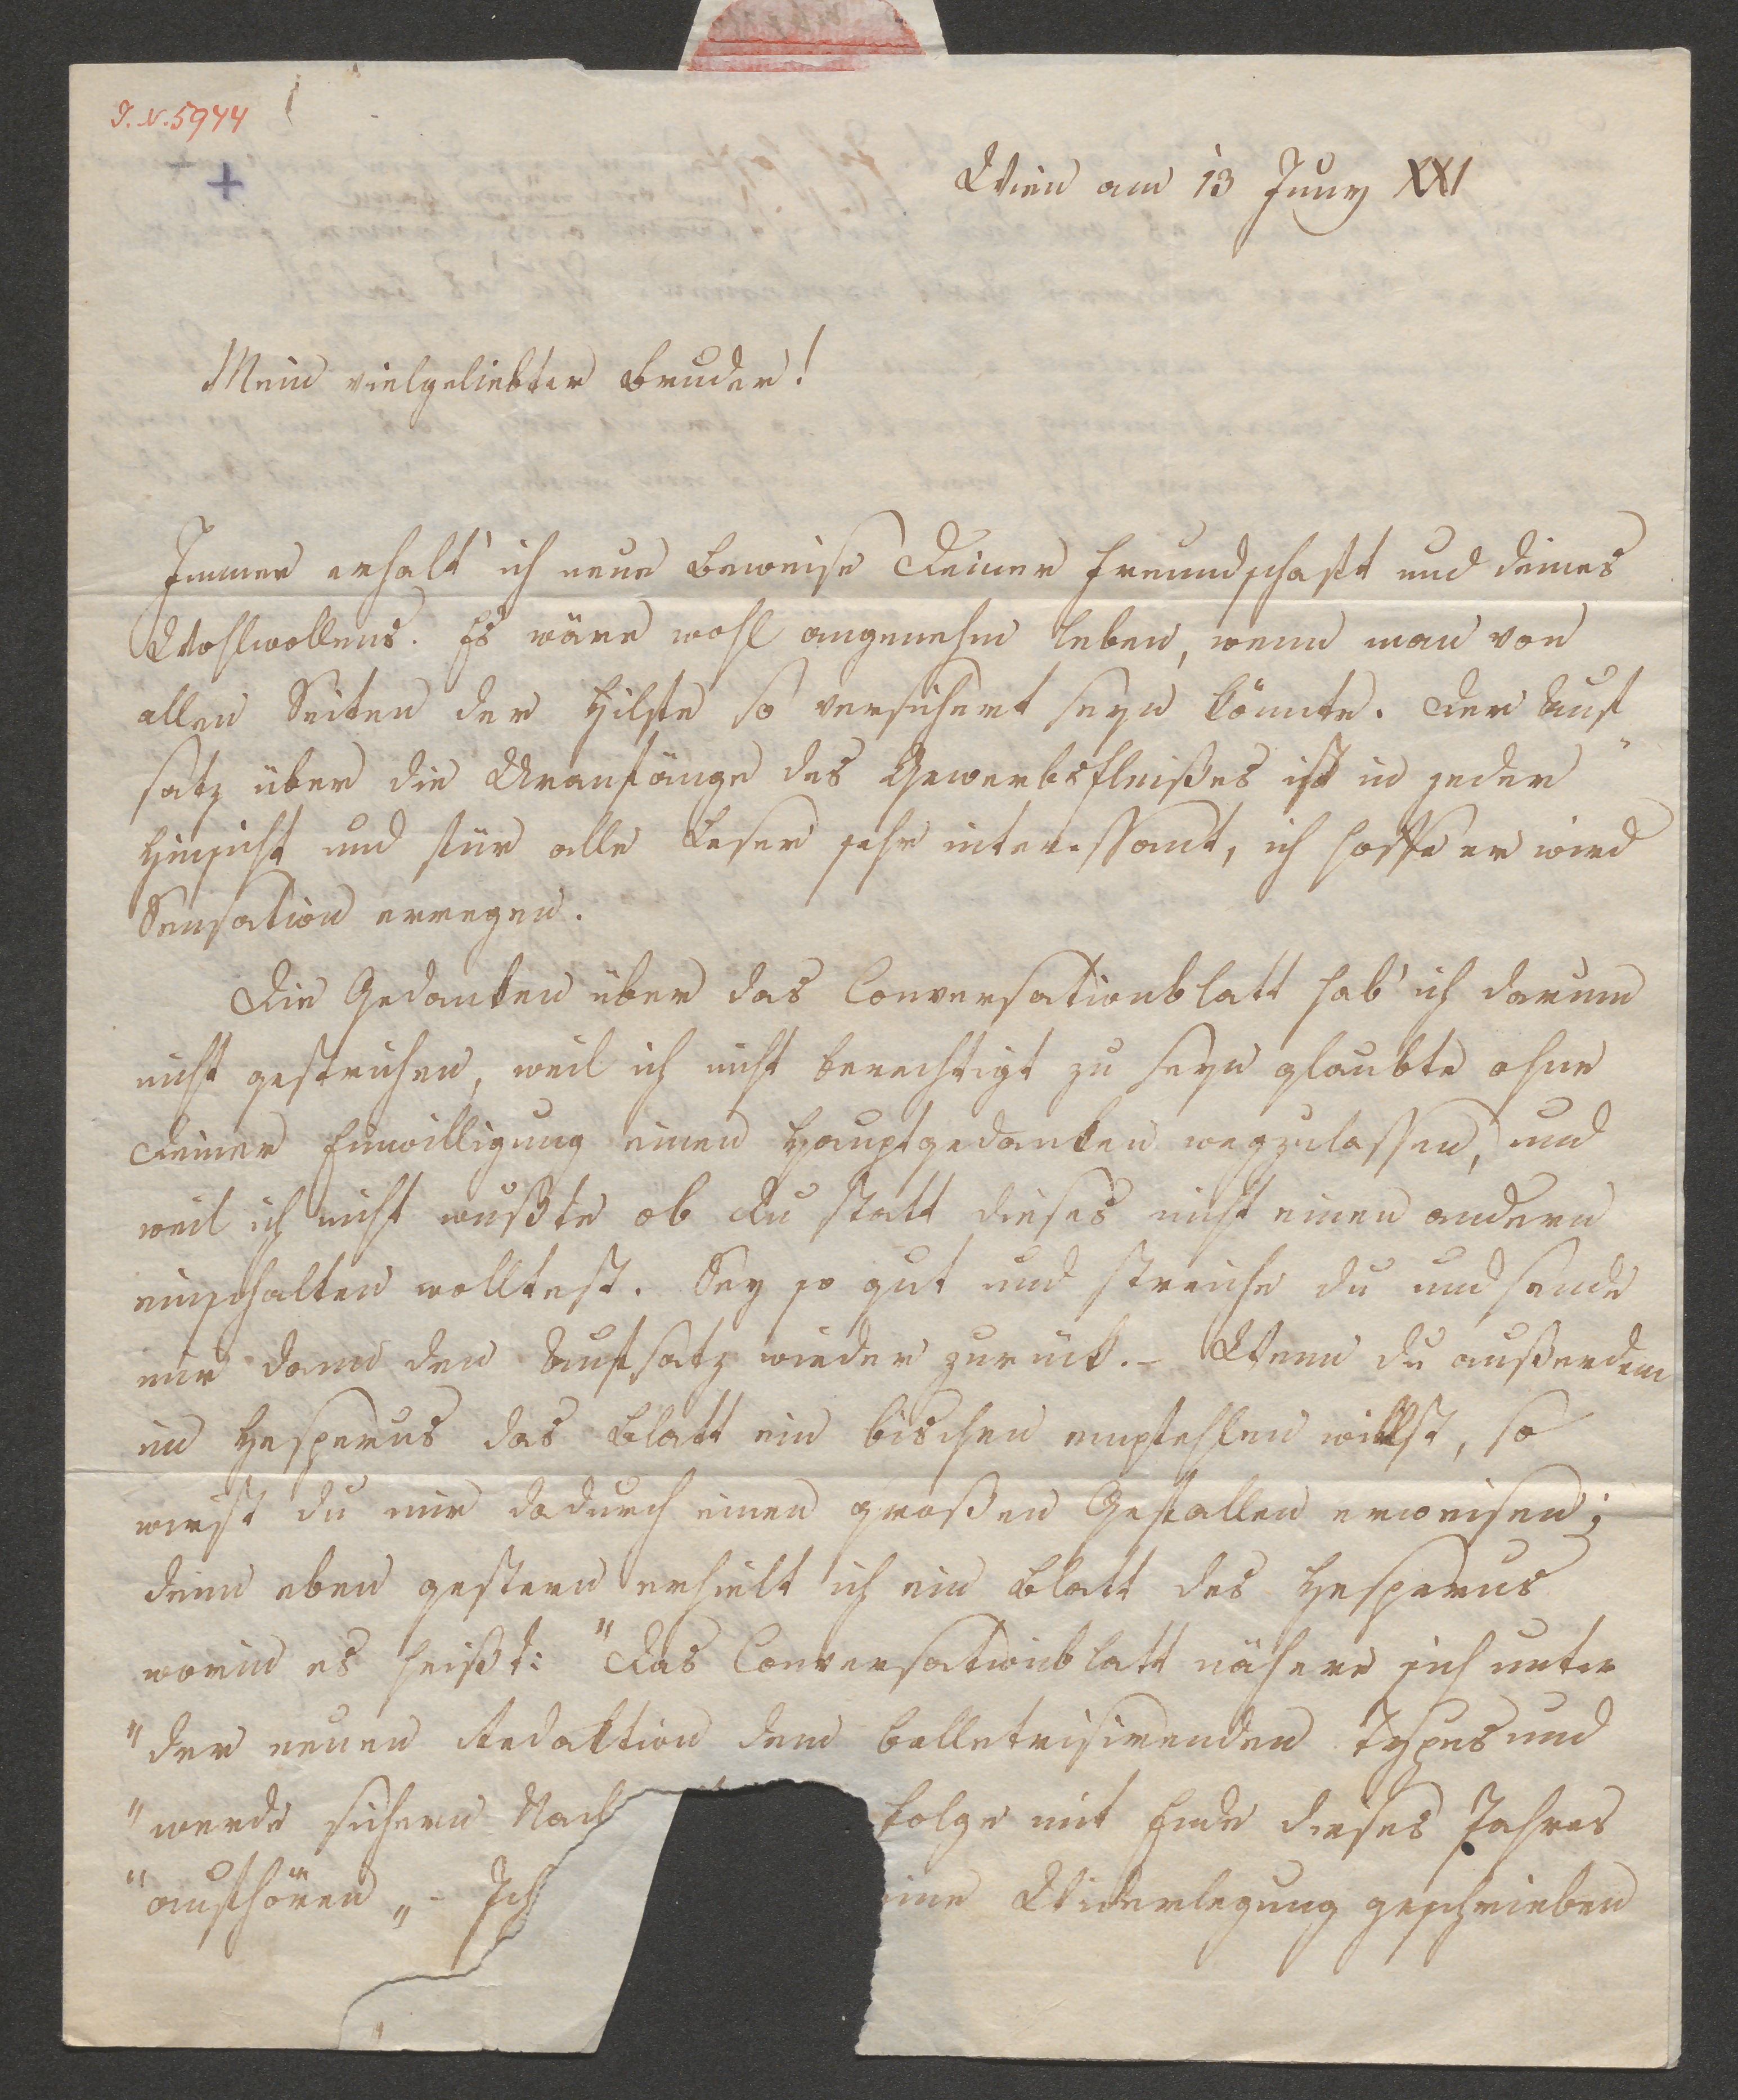 J. N. 5944
+
Wien am 13 Juny XXI
Mein vielgeliebter Bruder!
Immer erhalt' ich neue Beweise Deiner Freundschaft und deines
Wohlwollens. Es wäre wohl angenehm leben, wenn man von
allen Seiten der Hilfe so versichert seyn könnte. Der Auf
satz über die Uranfänge des Gewerbsfleißes ist in jeder
Hinsicht und für alle Leser sehr interessant, ich hoffe er wird
Sensation erregen.
Die Gedanken über das Conversationblatt hab' ich darum
nicht gestrichen, weil ich nicht berechtigt zu seyn glaubte ohne
Deiner Einwilligung einen Hauptgedanken wegzulassen, und
weil ich nicht wußte ob Du statt dieses nicht einen andern
einschalten wolltest. Sey so gut und streiche du und sende
mir dann den Aufsatz wieder zurück. – Wenn du außerdem
im Hesperus das Blatt ein bischen empfehlen willst, so
wirst du mir dadurch einen großen Gefallen erweisen;
denn eben gestern erhielt ich ein Blatt des Hesperus
worin es heißt: "Das Conversationblatt nähere sich unter
"der neuen Redaktion dem belletrisirenden Typus und
"werde sichern Nach folge mit Ende dieses Jahres
"aufhören„ – Ich eine Widerlegung geschrieben